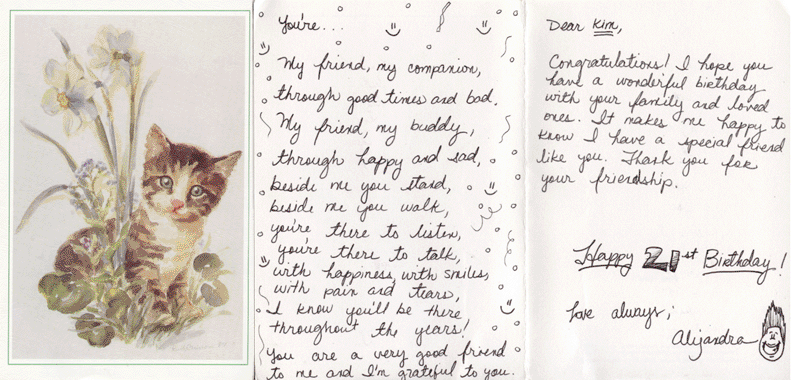 You're...
My friend, my companion,
through good times and bad.
My friend, my buddy,
through happy and sad,
beside me you stand,
beside me you walk,
you're there to listen,
you're there to talk,
with happiness, with smiles,
with pain and tears,
I know you'll be there
throughout the years!
You are a very good friend
to me and I'm grateful to you.
Dear Kim,
Congratulations! I hope you
have a wonderful birthday
with your family and loved
ones. It makes me happy to
know I have a special friend
like you. Thank you for
your friendship.
Happy 21st Birthday!
Love always,
Alijandra